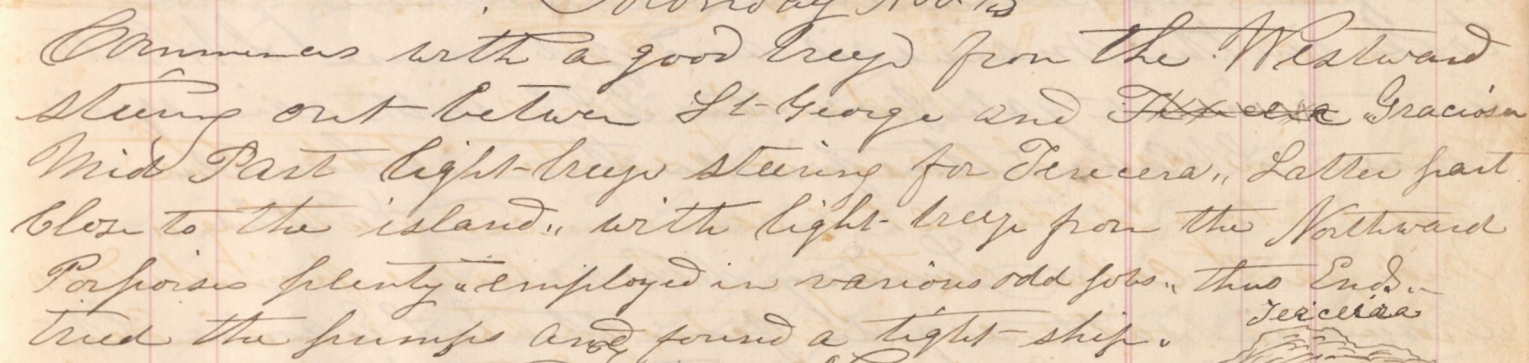 Monday Nov 13
Commences with a good breeze from the Westward
steering out betwen St George and Terceera Graciosa
Mid Part light breeze steering for Tercera,, Latter part
Close to the island,, with light breeze from the Northward
Porpoises plenty,, employed in various odd jobs,, thus Ends,,
Terceira
tried the pumps and found a tight ship.